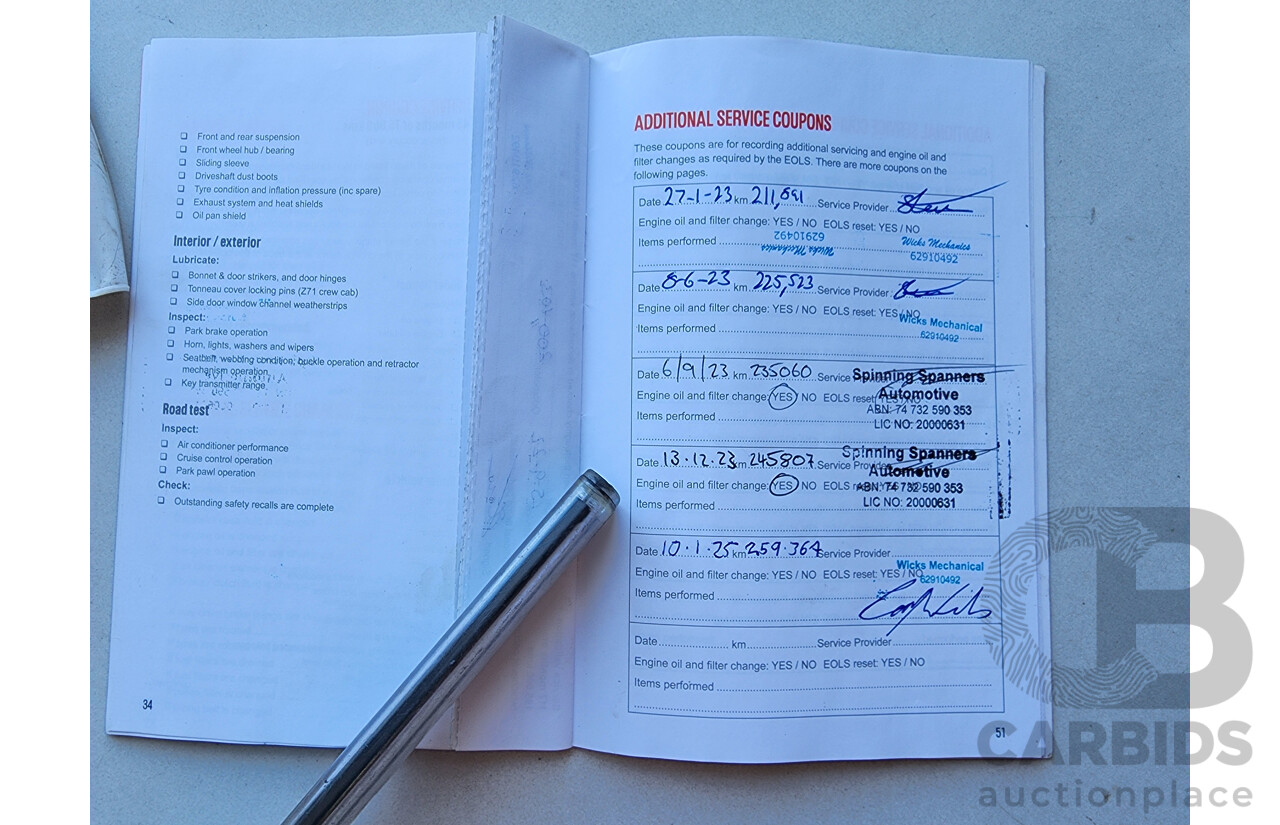 Front and rear suspension
Front wheel hub / bearing
Sliding sleeve
Driveshaft dust boots
Tyre condition and inflation pressure (inc spare)
Exhaust system and heat shields
Oil pan shield
Interior / exterior
Lubricate:
Bonnet & door strikers, and door hinges
Tonneau cover locking pins (Z71 crew cab)
Side door window channel weatherstrips
Inspect:
Park brake operation
Horn, lights, washers and wipers
Seatbelt, webbing condition, buckle operation and retractor
mechanism operation
Key transmitter range
Road test
Inspect:
Air conditioner performance
Cruise control operation
Park pawl operation
Check:
Outstanding safety recalls are complete
34
ADDITIONAL SERVICE COUPONS
These coupons are for recording additional servicing and engine oil and
filter changes as required by the EOLS. There are more coupons on the
following pages.
Date 27-1-23 km 211,691 Service Provider
Engine oil and filter change: YES / NO EOLS reset: YES / NO
62910492
Items performed
Wicks Mechanics
Wicks Mechanics
62910492
Date 8-6-23 km 225,523 Service Provider
Engine oil and filter change: YES / NO EOLS reset: YES / NO
Wicks Mechanical
62910492
Items performed
Date 6/9/23 km 235060 Service
Spinning Spanners
Automotive
ABN: 74 732 590 353
LIC NO: 20000631
Engine oil and filter change: YES / NO EOLS reset: YES / NO
Items performed
Date 13.12.23 km 245807 Service Provider
Spinning Spanners
Automotive
ABN: 74 732 590 353
LIC NO: 20000631
Engine oil and filter change: YES / NO EOLS reset: YES
Items performed
Date 10.1.25 km 259.364 Service Provider
Wicks Mechanical
62910492
Engine oil and filter change: YES / NO EOLS reset: YES / NO
Items performed
Date km Service Provider
Engine oil and filter change: YES / NO EOLS reset: YES / NO
Items performed
51
CB
CARBIDS
auctionplace